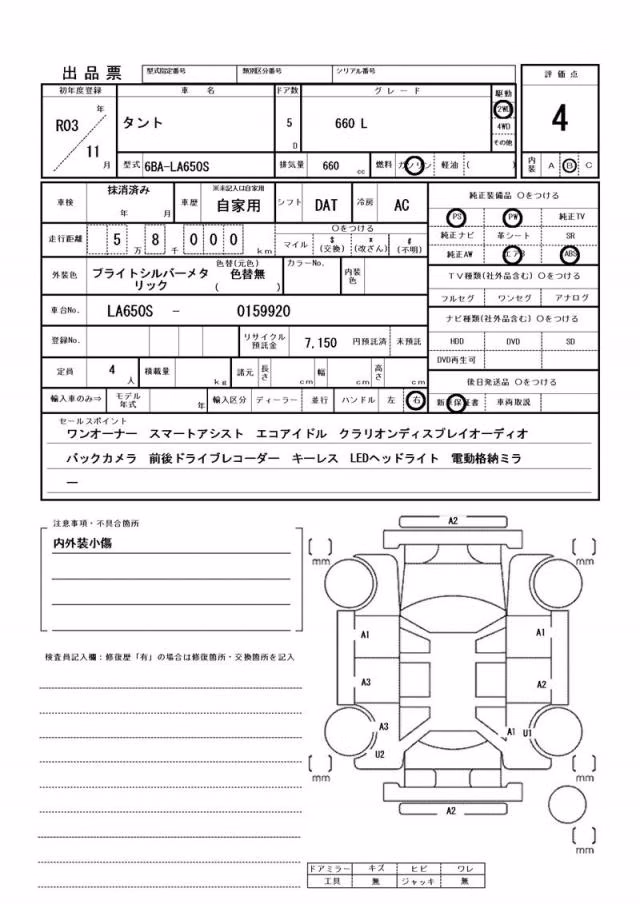 出品票 型式指定番号 類別区分番号 シリアル番号
評価点
初年度登録 車名 ドア数 グレード 駆動
R03 年 11 月 タント 5 D 660 L 2WD 4WD その他 4
型式 6BA-LA650S 排気量 660 cc 燃料 ガソリン 軽油 ( ) 内装 A B C
車検 抹消済み 年 月 車歴 ※未記入は自家用 自家用 シフト DAT 冷房 AC
純正装備品 〇をつける
PS PW 純正TV
純正ナビ 革シート SR
純正AW エアB ABS
走行距離 5 万 8 千 000 km 〇をつける マイル $ (交換) * (改ざん) # (不明)
外装色 ブライトシルバーメタリック 色替(元色) 色替無 ( ) カラーNo. 内装色
TV種類(社外品含む) 〇をつける
フルセグ ワンセグ アナログ
車台No. LA650S - 0159920
ナビ種類(社外品含む) 〇をつける
HDD DVD SD
DVD再生可
登録No. リサイクル預託金 7,150 円預託済 未預託
定員 4 人 積載量 kg 諸元 長さ cm 幅 cm 高さ cm
後日発送品 〇をつける
新車保証書 車両取説
輸入車のみ⇒ モデル年式 年 輸入区分 ディーラー 並行 ハンドル 左 右
セールスポイント
ワンオーナー スマートアシスト エコアイドル クラリオンディスプレイオーディオ
バックカメラ 前後ドライブレコーダー キーレス LEDヘッドライト 電動格納ミラ
ー
注意事項・不具合箇所
内外装小傷
検査員記入欄：修復歴「有」の場合は修復箇所・交換箇所を記入
A2
[ ] mm [ ] mm
A1 A1
A3 A2
A3 A1 U1
U2
[ ] mm [ ] mm
A2
[ ] mm
ドアミラー キズ ヒビ ワレ
工具 無 ジャッキ 無